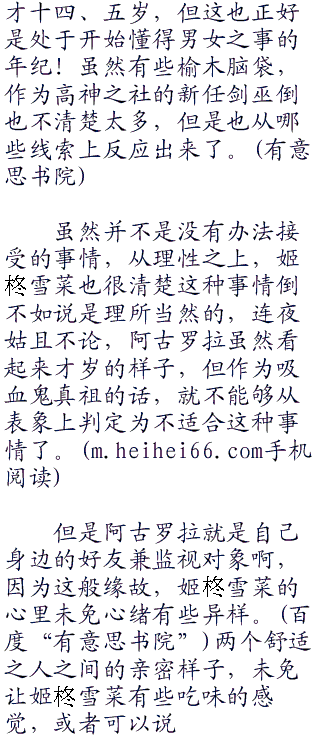 才十四、五岁，但这也正好
是处于开始懂得男女之事的
年纪！虽然有些榆木脑袋，
作为高神之社的新任剑巫倒
也不清楚太多，但是也从哪
些线索上反应出来了。(有意
思书院)
虽然并不是没有办法接
受的事情，从理性之上，姬
柊雪菜也很清楚这种事情倒
不如说是理所当然的，连夜
姑且不论，阿古罗拉虽然看
起来才岁的样子，但作为吸
血鬼真祖的话，就不能够从
表象上判定为不适合这种事
情了。(m.heihei66.com手机
阅读)
但是阿古罗拉就是自己
身边的好友兼监视对象啊，
因为这般缘故，姬柊雪菜的
心里未免心绪有些异样。(百
度“有意思书院”)两个舒适
之人之间的亲密样子，未免
让姬柊雪菜有些吃味的感
觉，或者可以说